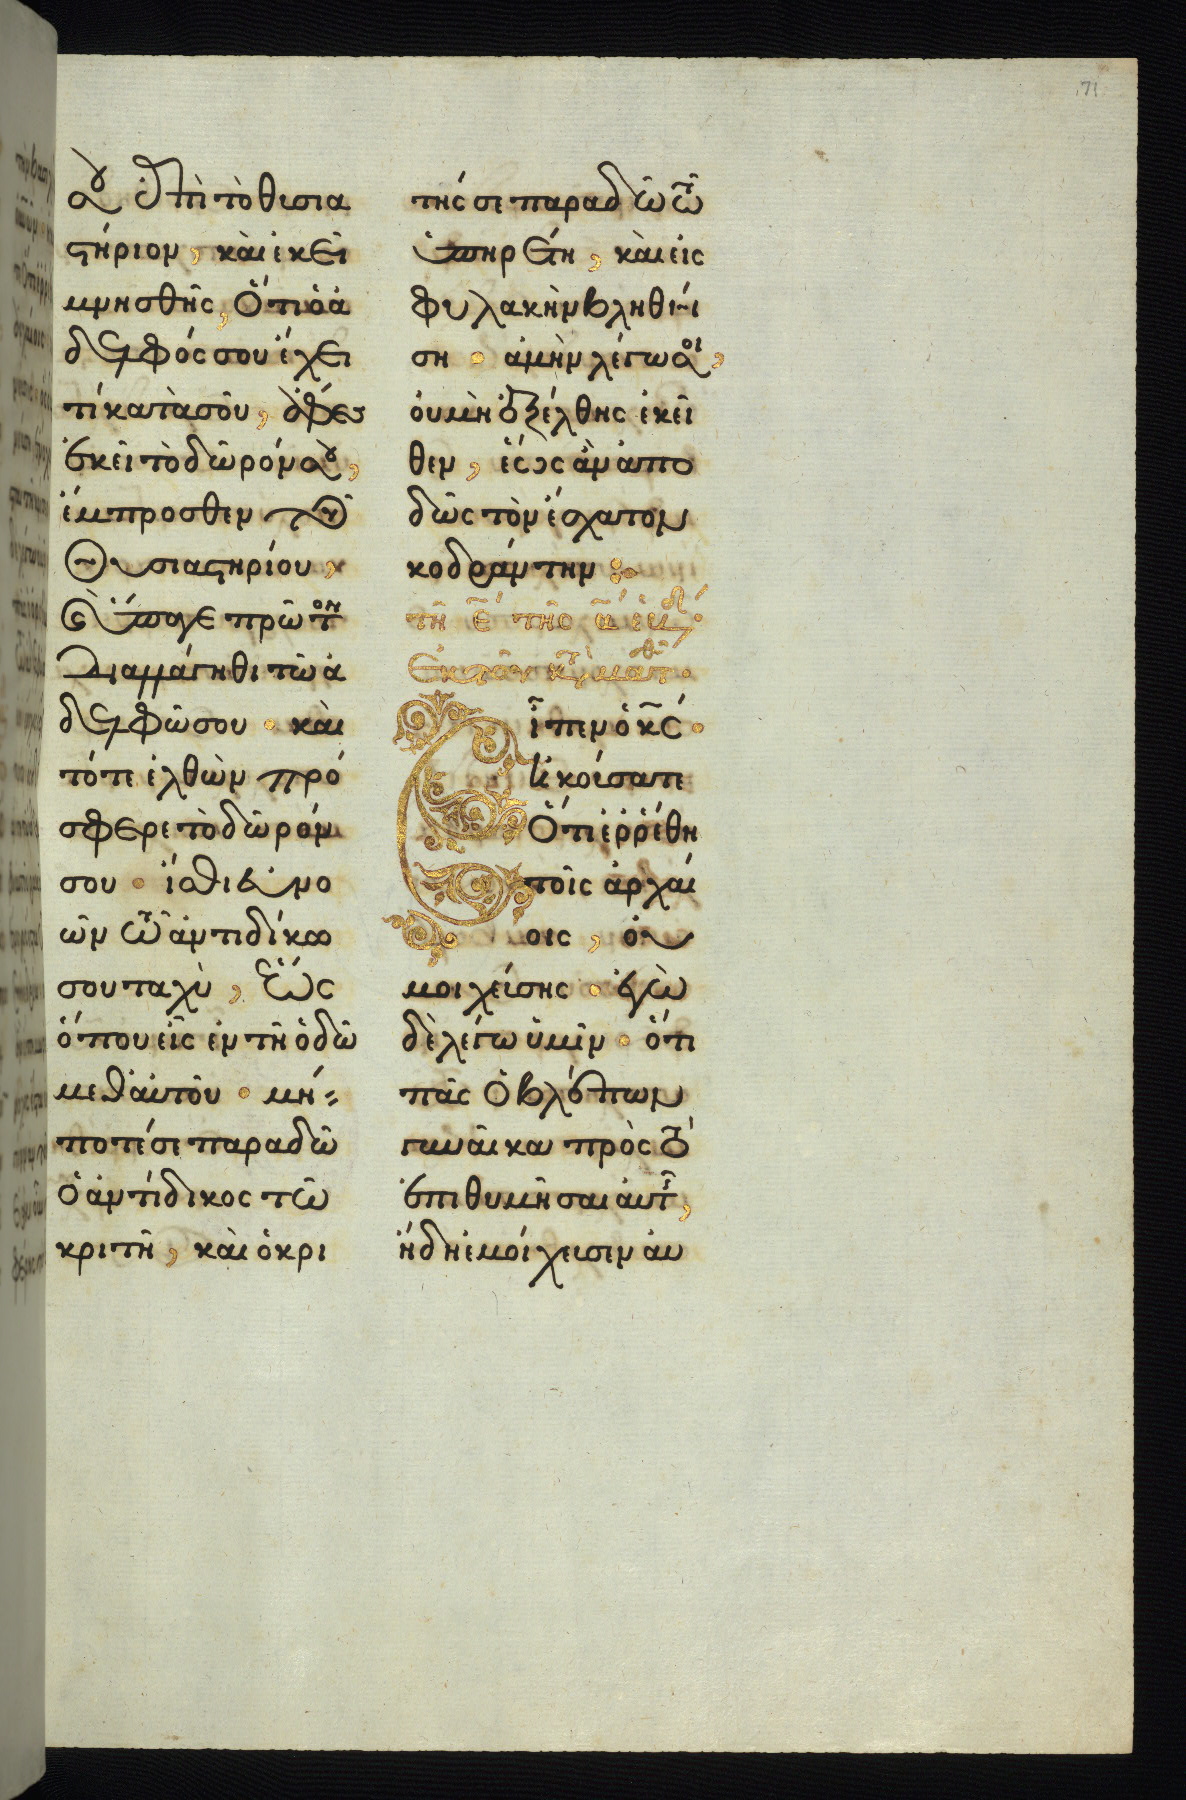 71
σου ἐπὶ τὸ θισια
στήριον, κὰι ἐκεῖ
μνησθῆς, ὅτι ὁ ἀ
δελφός σου ἔχει
τί κατὰ σοῦ, ἄφες
ἐκεῖ τὸ δῶρόν σου,
ἔμπροσθεν τοῦ
θυσιαστηρίου,
καὶ ὕπαγε πρῶτον
διαλλάγηθι τῶ ἀ
δελφῶ σου · κὰι
τότε ἐλθὼν πρό
σφερε τὸ δῶρόν
σου · ἴσθι ἐυνο
ῶν τῶ ἀντιδίκω
σου ταχὺ, ἕως
ὅπου εἶς ἐν τῆ ὁδῶ
μετ' ἀυτοῦ · μή-
ποτέ σε παραδῶ
ὁ ἀντίδικος τῶ
κριτῆ, κὰι ὁ κρι
τής σε παραδῶ τῶ
ὑπηρέτη, κὰι εἰς
φυλακὴν βληθή
ση · ἀμὴν λέγω σοί,
ὀυ μὴ ἐξέλθης ἐκεῖ
θεν, ἕως ἂν ἀπο
δῶς τὸν ἔσχατον
κοδράντην :·
τῆ ε̄ τῆς ᾱ ἑβδ·
Ἐκ τοῦ κτ̀ ματθ·
Εἶπεν ὁ κ̅ς ·
ἠκούσατε
ὅτι ἐρρέθη
τοῖς ἀρχαί
οις, ὀυ
μοιχεύσης · ἐγὼ
δὲ λέγω ὑμῖν · ὅτι
πᾶς ὁ βλέπων
γυναῖκα πρὸς τὸ
ἐπιθυμῆσαι ἀυτῆ,
ἤδη ἐμοίχευσεν ἀυ